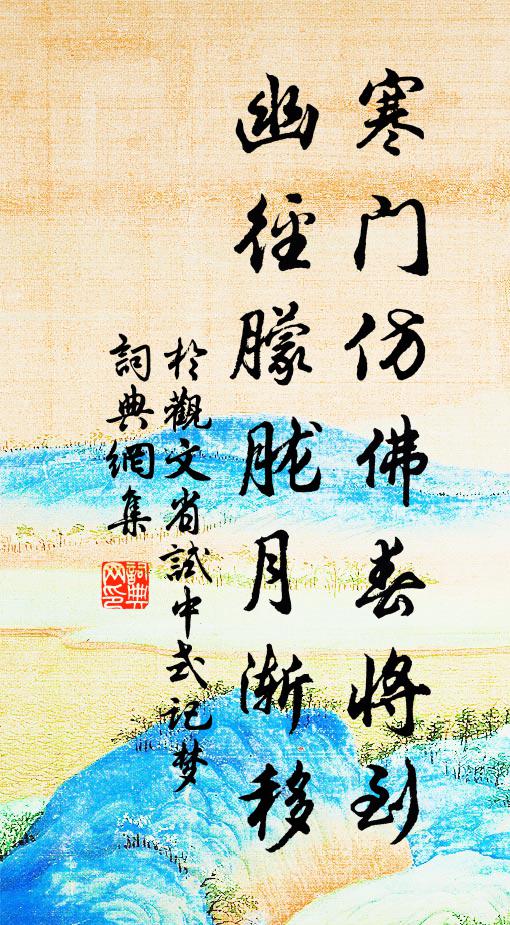 寒门仿佛春将到
幽径朦胧月渐移
於觀文省試中式记梦
詞典網集
詞典网印